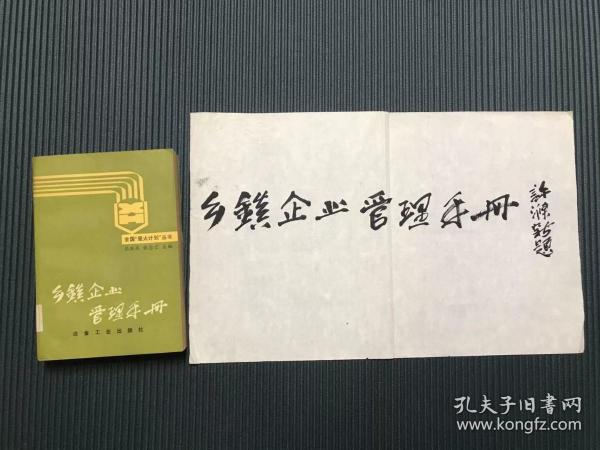 全国“星火计划”丛书
乡镇企业
管理手册
冶金工业出版社
乡镇企业管理手册
许涤新题
孔夫子旧书网
www.kongfz.com